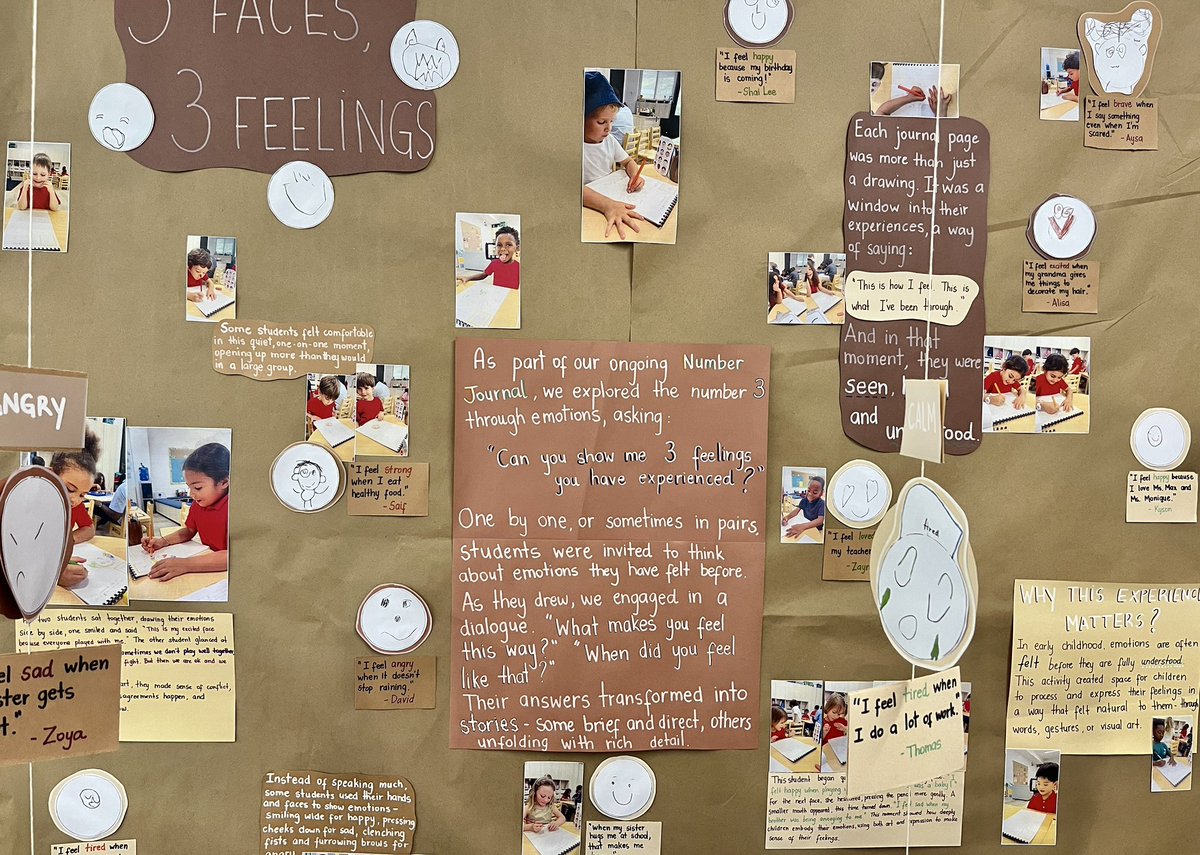 3 FACES,
3 FEELINGS
"I feel happy
because my birthday
is coming!"
- Shai Lee
"I feel brave when
I say something
even when I'm
scared."
- Aysa
Each journal page
was more than just
a drawing. It was a
window into their
experiences, a way
of saying:
"This is how I feel. This is
what I've been through."
And in that
moment, they were
seen,
and
"I feel excited when
my grandma gives
me things to
decorate my hair."
- Alisa
Some students felt comfortable
in this quiet, one-on-one moment,
opening up more than they would
in a large group.
ANGRY
CALM
As part of our ongoing Number
Journal, we explored the number 3
through emotions, asking:
"Can you show me 3 feelings
you have experienced?"
One by one, or sometimes in pairs,
students were invited to think
about emotions they have felt before.
As they drew, we engaged in a
dialogue. "What makes you feel
this way?" "When did you feel
like that?"
Their answers transformed into
stories - some brief and direct, others
unfolding with rich detail.
"I feel strong
when I eat
healthy food."
- Saif
"I feel loved
my teacher
"I feel happy because
I love Ms. Max and
Ms. Monique."
- Kyson
tired
"I feel angry
when it doesn't
stop raining."
- David
two students sat together, drawing their emotions
side by side, one smiled and said "This is my excited face
because everyone played with me." The other student glanced at
sometimes we don't play well together
fight. But then we are ok and we
art, they made sense of conflict,
agreements happen, and
sad when
gets
- Zoya
WHY THIS EXPERIENCE
MATTERS?
In early childhood, emotions are often
felt before they are fully understood.
This activity created space for children
to process and express their feelings in
a way that felt natural to them - through
words, gestures, or visual art.
"I feel tired when
I do a lot of work."
- Thomas
This student began
felt happy when playing
For the next face, she hesitated, pressing the pencil more gently. A
smaller mouth appeared, this time turned down. "I felt sad when my
brother was being annoying to me." This moment showed how deeply
children embody their emotions, using both art and expression to make
sense of their feelings.
Instead of speaking much,
some students used their hands
and faces to show emotions -
smiling wide for happy, pressing
cheeks down for sad, clenching
fists and furrowing brows for
"when my sister
hugs me at school,
that makes me
"I feel tired when